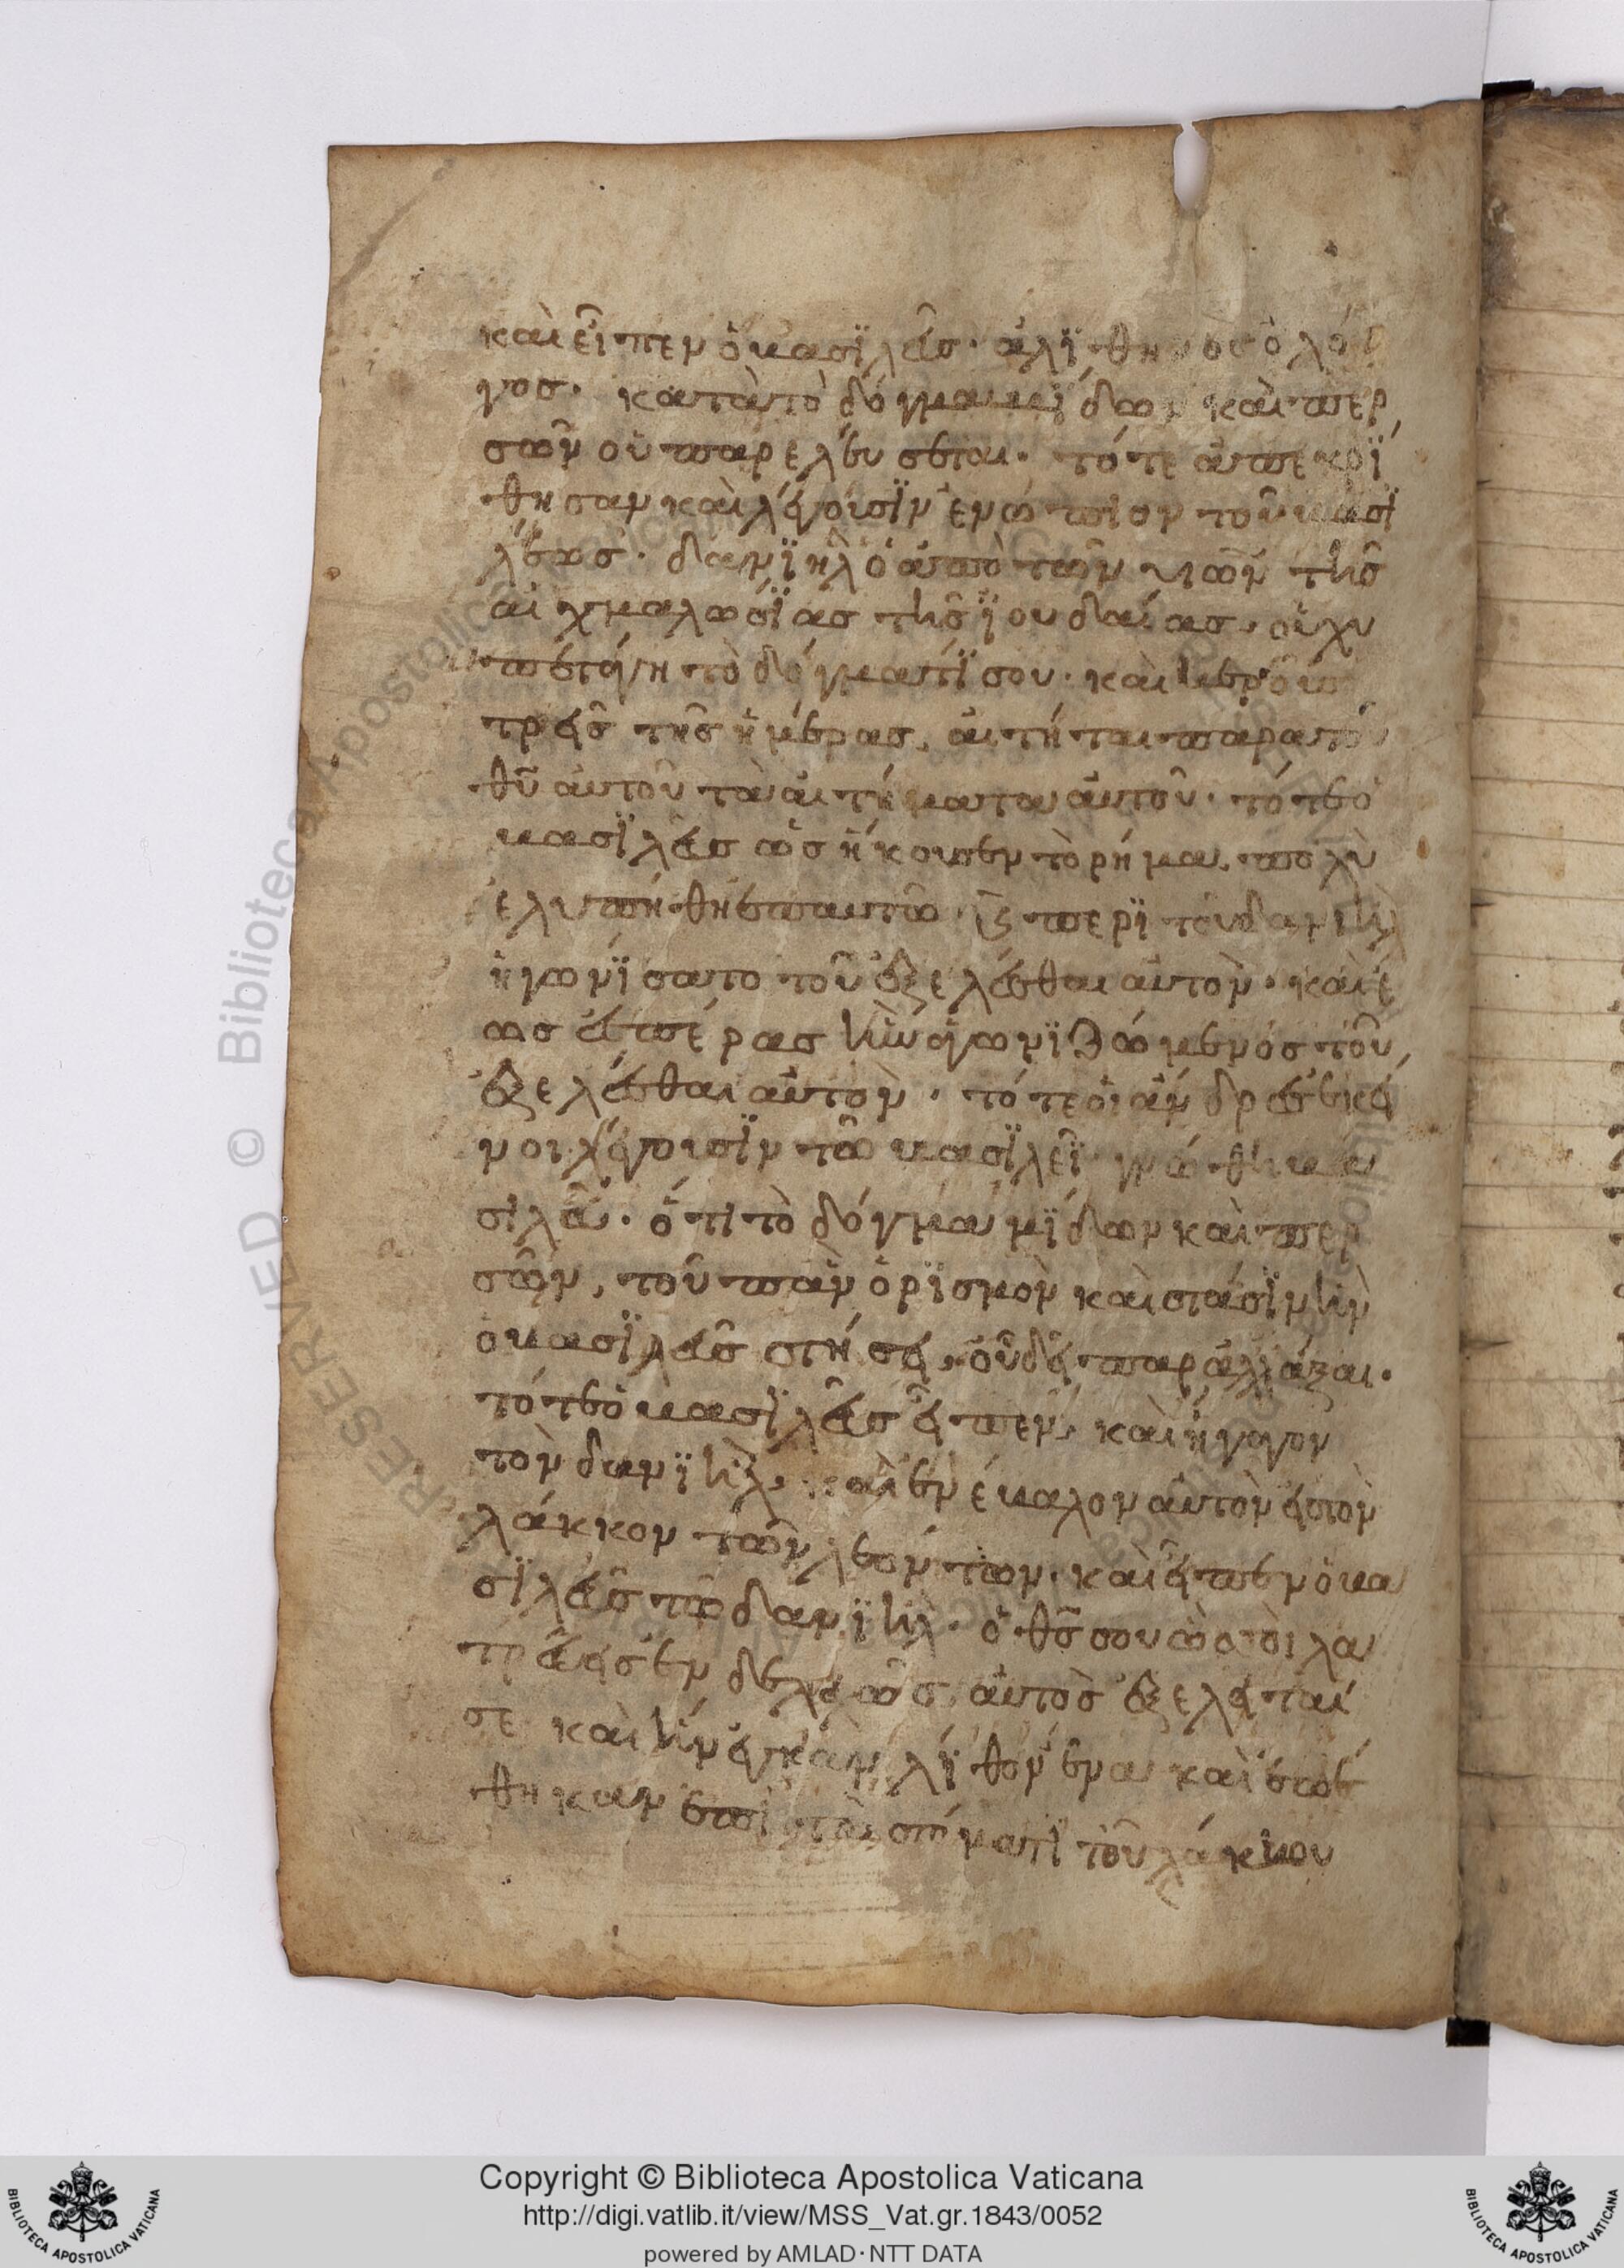 καὶ εἶπεν ὁ βασϊλεῦσ· ἀλϊθηνὸσ ὁ λό
γοσ· κατὰ τὸ δόγμα μΐδων καὶ περ
σῶν οὐ παρελεύσεται· τότε ἀπεκρΐ
θησαν καὶ λέγουσϊν ἐνώπιον τοῦ βασϊ
λέωσ· δανϊὴλ ὁ ἀπὸ τῶν υἱῶν τῆσ
αἰχμαλωσΐασ τῆσ ϊουδαίασ, οὐχ ὑ
πετάγη τὸ δόγματΐ σου· καὶ καιροὺσ
τρεῖσ τῆσ ἡμέρασ, αἰτήται παρὰ τοῦ
θῦ αὐτοῦ τὰ αἰτήματα αὐτοῦ· τότε ὁ
βασϊλεὺσ ὡσ ἤκουσεν τὸ ρήμα, πολὺ
ἐλυπήθη ἐπαυτῶ· ϗ περϊ τοῦ δανϊὴλ
ἠγωνΐσατο τοῦ ἐξελέσθαι αὐτὸν· καὶ ἕ
ωσ ἑσπέρασ ἦν ἀγωνϊζώμενόσ τοῦ
ἐξελέσθαι αὐτὸν· τότε οἱ ἄνδρεσ ἐκεῖ
νοι λέγουσϊν τῶ βασϊλεῖ· γνῶθι βα
σιλεῦ· ὅτι τὸ δόγμα μΐδων καὶ περ
σῶν, τοῦ πᾶν ὁρϊσμὸν καὶ στάσϊν ἣν
ὁ βασϊλεῦσ στήσει, οὐ δεῖ παραλλάξαι·
τότε ὁ βασϊλεῦσ εἶπεν, καὶ ἤγαγον
τὸν δανϊὴλ, καὶ ἐνέβαλον αὐτὸν εἰσ τὸν
λάκκον τῶν λεόντων· καὶ εἶπεν ὁ βα
σϊλεῦσ τῶ δανϊὴλ· ὁ θσ σου ὧ σὺ λα
τρεύεισ ἐνδελεχῶσ, αὐτὸσ ἐξελεῖταί
σε καὶ ἤνεγκαν λΐθον ἕνα καὶ ἐπέ
θηκαν ἐπϊ τῶ στόματϊ τοῦ λάκκου